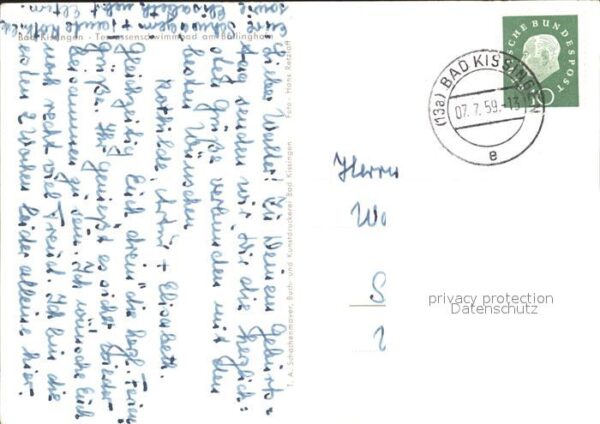 Bad Kissingen - Terrassenschwimmbad am Ballinghain
Foto: Hans Retzlaff
T. A. Schachenmayer, Buch- und Kunstdruckerei Bad Kissingen
DEUTSCHE BUNDESPOST
(13a) BAD KISSINGEN
07. 7. 59.-13
e
Lieber Walter! Zu Deinem Geburts-
tag senden wir Dir die herzlich-
sten Grüße verbunden mit den
besten Wünschen
+ Elisabeth.
Gleichzeitig Euch dreien die herzl. Ferien-
grüße. Ihr genießt es sicher wieder
beisammen zu sein. Ich wünsche Euch
noch recht viel Freude. Ich bin die
ersten 2 Wochen leider alleine hier.
Herrn
Wo
S
privacy protection
Datenschutz